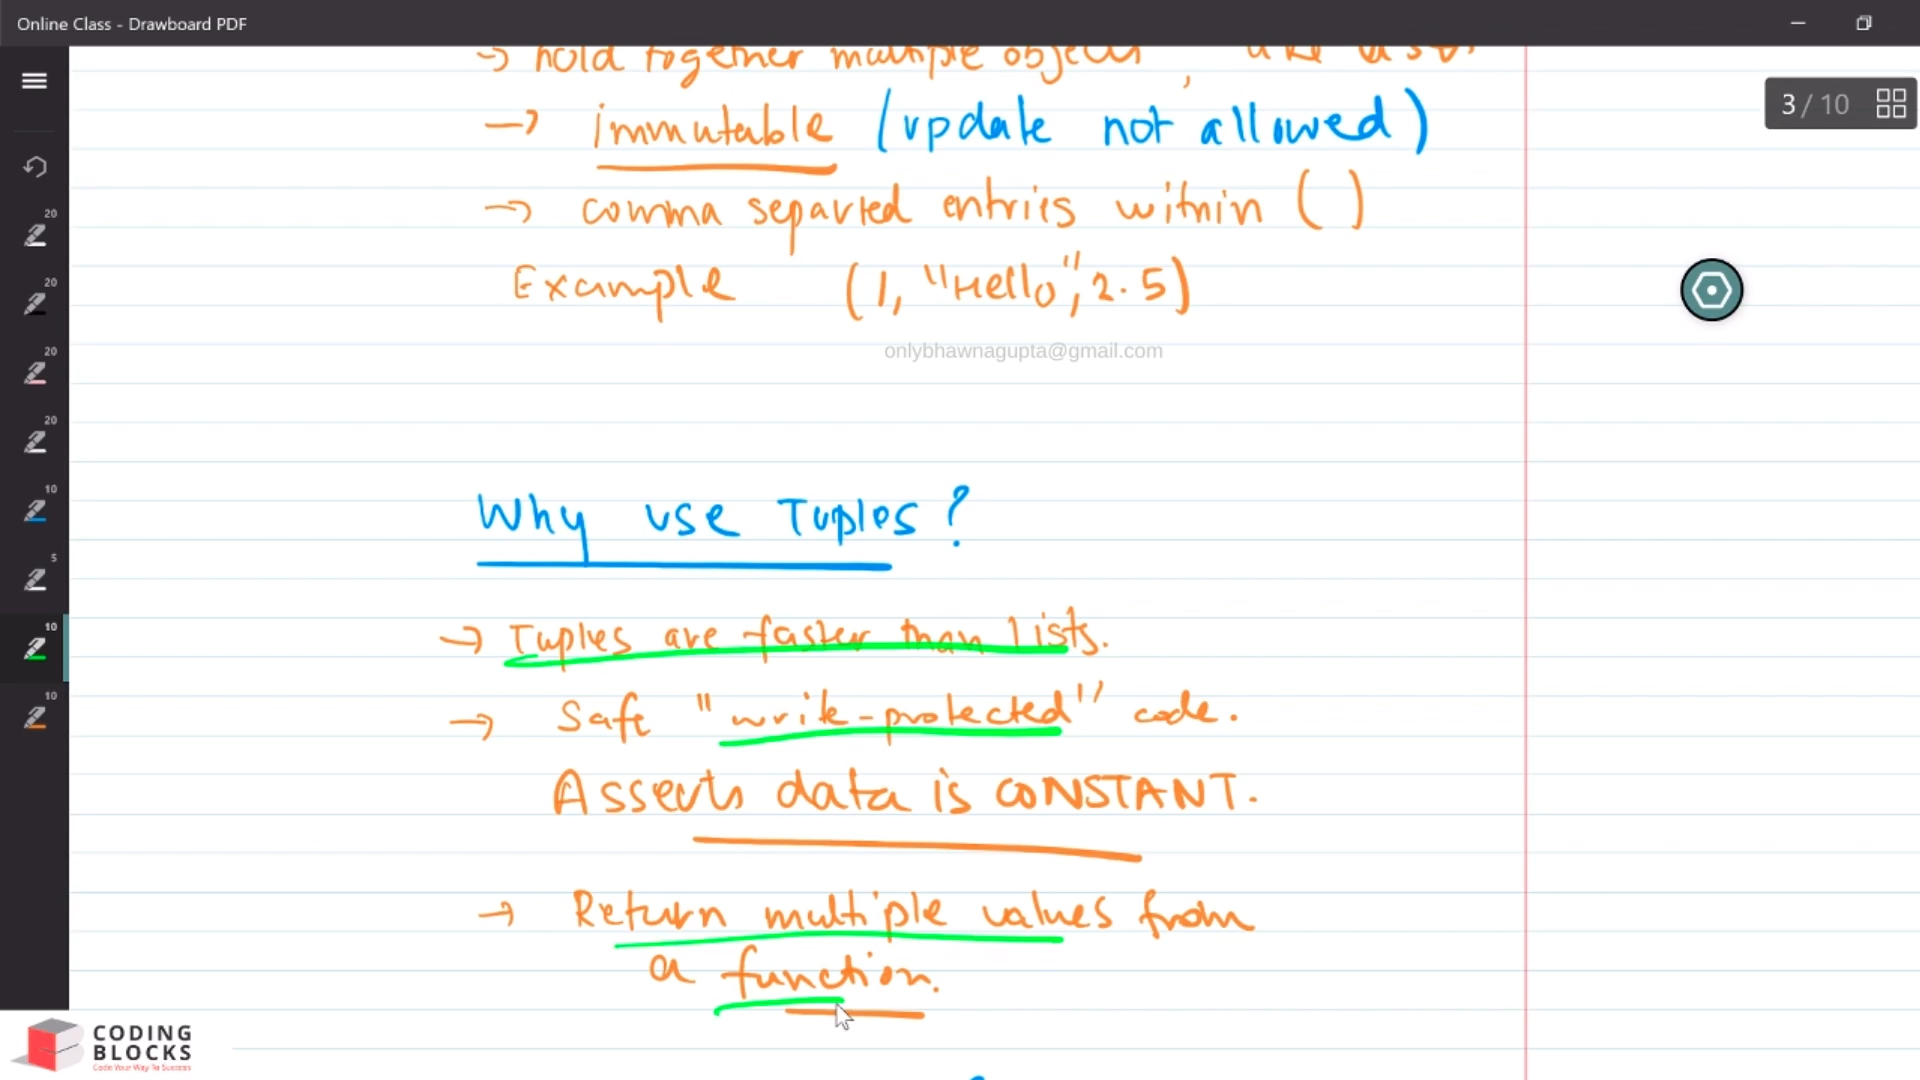 Online Class - Drawboard PDF
3 / 10
→ hold together multiple objects, like list.
→ immutable (update not allowed)
→ comma separted entries within ( )
Example (1, "Hello", 2.5)
onlybhawnagupta@gmail.com
Why use Tuples?
→ Tuples are faster than lists.
→ Safe "write-protected" code.
Asserts data is CONSTANT.
→ Return multiple values from
a function.
20
20
20
20
10
5
10
10
CODING
BLOCKS
Code Your Way To Success